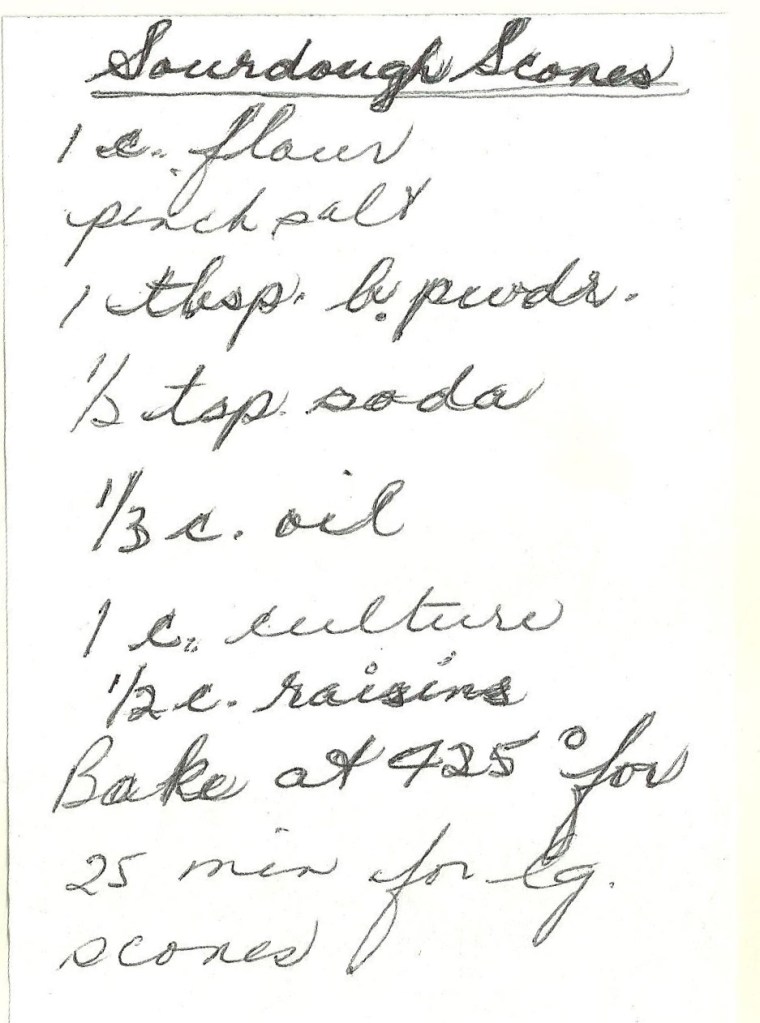 Sourdough Scones
1 c. flour
pinch salt
1 tbsp. b. pwdr.
1/2 tsp. soda
1/3 c. oil
1 c. culture
1/2 c. raisins
Bake at 425° for
25 min for lg.
scones